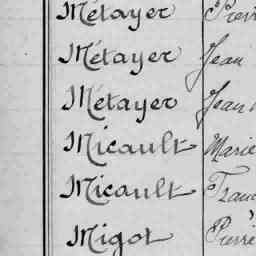 Métayer Pierr
Métayer Jean
Métayer Jean
Micault Marie
Micault Franc
Migot Pierre